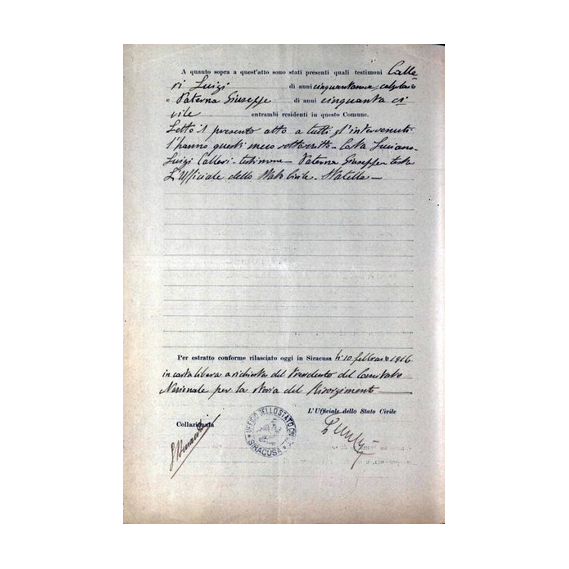 A quanto sopra a quest'atto sono stati presenti quali testimoni Calle-
ri Luigi di anni cinquantanove calzolaio
e Paterna Giuseppe di anni cinquanta ci-
vile entrambi residenti in questo Comune.
Letto il presente atto a tutti gl'intervenuti
l'hanno questi meco sottoscritto Luciano
Luigi Calleri testimone Paterna Giuseppe teste
L'Ufficiale dello Stato Civile Statella
Per estratto conforme rilasciato oggi in Siracusa li 10 febbraio 1916
in carta libera a richiesta del Presidente del Comitato
Nazionale per la storia del Risorgimento
L'Ufficiale dello Stato Civile
Collazionata
UFFICIO DELLO STATO CIVILE
SIRACUSA